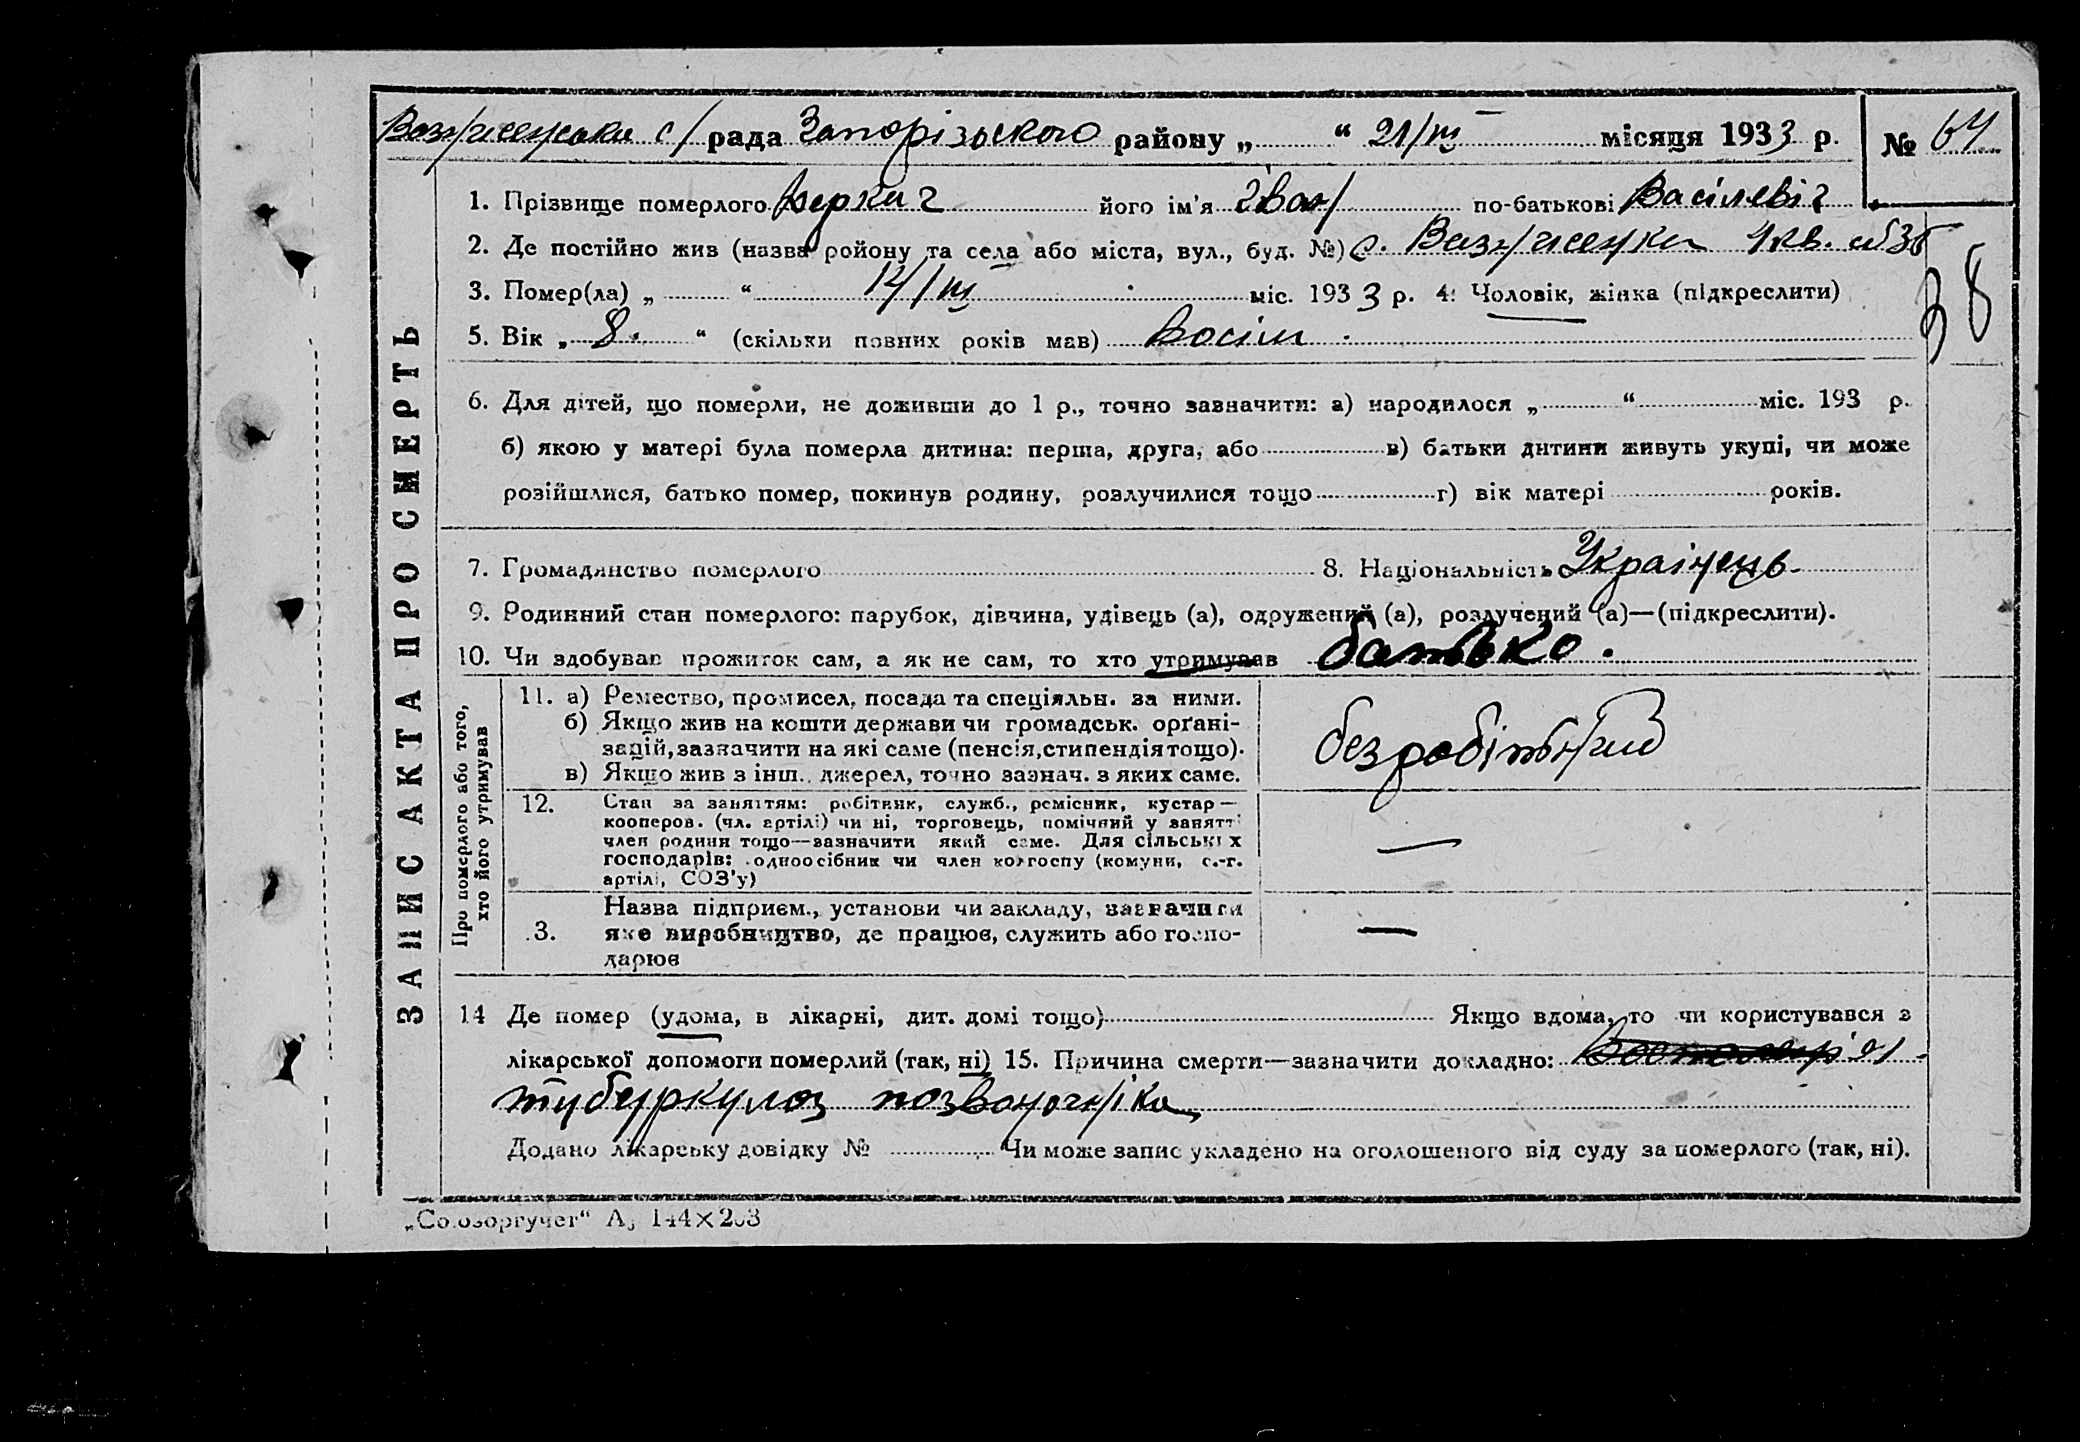 Вознесенська с/рада Запорізького району „ “ 21/III місяця 1933 р. № 64
1. Прізвище померлого його ім'я Іван по-батькові Васілевіч
2. Де постійно жив (назва ройону та села або міста, вул., буд. №) с. Вознесенка 4 кв.
3. Помер(ла) „ “ 14/III міс. 1933 р. 4: Чоловік, жінка (підкреслити)
38
5. Вік „ 8. “ (скільки повних років мав) Восім.
6. Для дітей, що померли, не доживши до 1 р., точно зазначити: а) народилося „ “ міс. 193 р.
б) якою у матері була померла дитина: перша, друга, або в) батьки дитини живуть укупі, чи може
розійшлися, батько помер, покинув родину, розлучилися тощо г) вік матері років.
7. Громадянство померлого 8. Національність Українець.
9. Родинний стан померлого: парубок, дівчина, удівець (а), одружений (а), розлучений (а)—(підкреслити).
10. Чи здобував прожиток сам, а як не сам, то хто утримував батько.
ЗАПИС АКТА ПРО СМЕРТЬ
Про померлого або того, хто його утримував
11. а) Ремество, промисел, посада та спеціяльн. за ними.
б) Якщо жив на кошти держави чи громадськ. орґані-
зацій, зазначити на які саме (пенсія, стипендія тощо).
в) Якщо жив з інш. джерел, точно зазнач. з яких саме.
безробітний
12. Стан за заняттям: робітник, служб., ремісник, кустар—
кооперов. (чл. артілі) чи ні, торговець, помічний у занятті
член родини тощо—зазначити який саме. Для сільських
господарів: одноосібник чи член колгоспу (комуни, с.-г.
артілі, СОЗ'у)
—
.3. Назва підприєм., установи чи закладу, зазначити
яке виробництво, де працює, служить або госпо-
дарює
—
14 Де помер (удома, в лікарні, дит. домі тощо) Якщо вдома, то чи користувався з
лікарської допомоги померлий (так, ні) 15. Причина смерти—зазначити докладно:
туберкулоз позвоночніка
Додано лікарську довідку № Чи може запис укладено на оголошеного від суду за померлого (так, ні).
„Союзоргучет“ А5 144×203